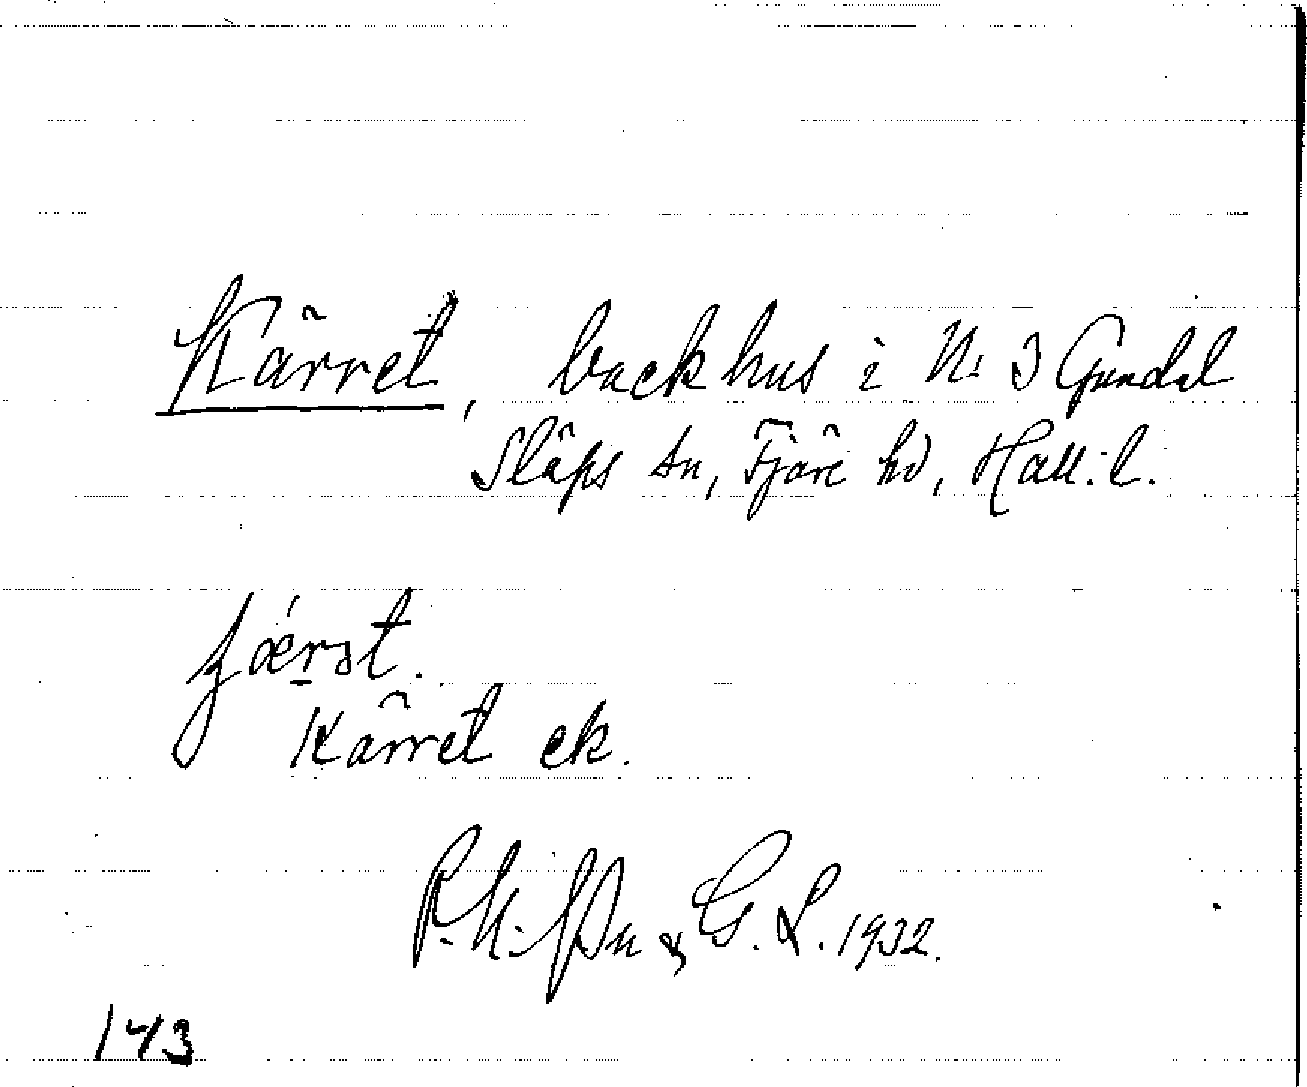 Kärret, backhus i N. 3 Gundal
Släps sn, Fjäre hd, Hall. l.
Kärret ek.
G. L. 1932.
143